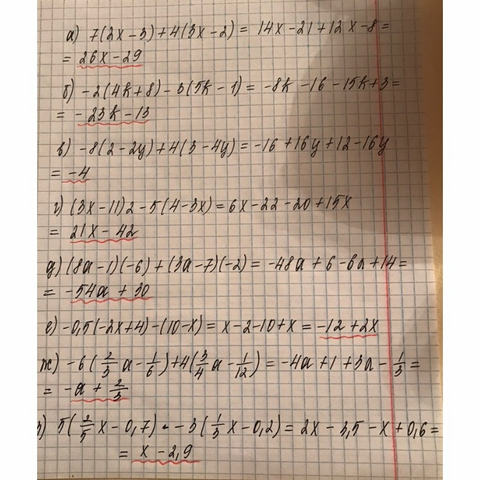 а) 7(2x-3)+4(3x-2) = 14x-21+12x-8 =
= 26x-29
б) -2(4k+8)-3(5k-1) = -8k-16-15k+3 =
= -23k-13
в) -8(2-2y)+4(3-4y) = -16+16y+12-16y
= -4
г) (3x-11)2-5(4-3x) = 6x-22-20+15x
= 21x-42
д) (8a-1)(-6)+(3a-7)(-2) = -48a+6-6a+14 =
= -54a+30
е) -0,5(-2x+4)-(10-x) = x-2-10+x = -12+2x
ж) -6(2/3a-1/6)+4(3/4a-1/12) = -4a+1+3a-1/3 =
= -a+2/3
з) 5(2/5x-0,7)-3(1/3x-0,2) = 2x-3,5-x+0,6 =
= x-2,9